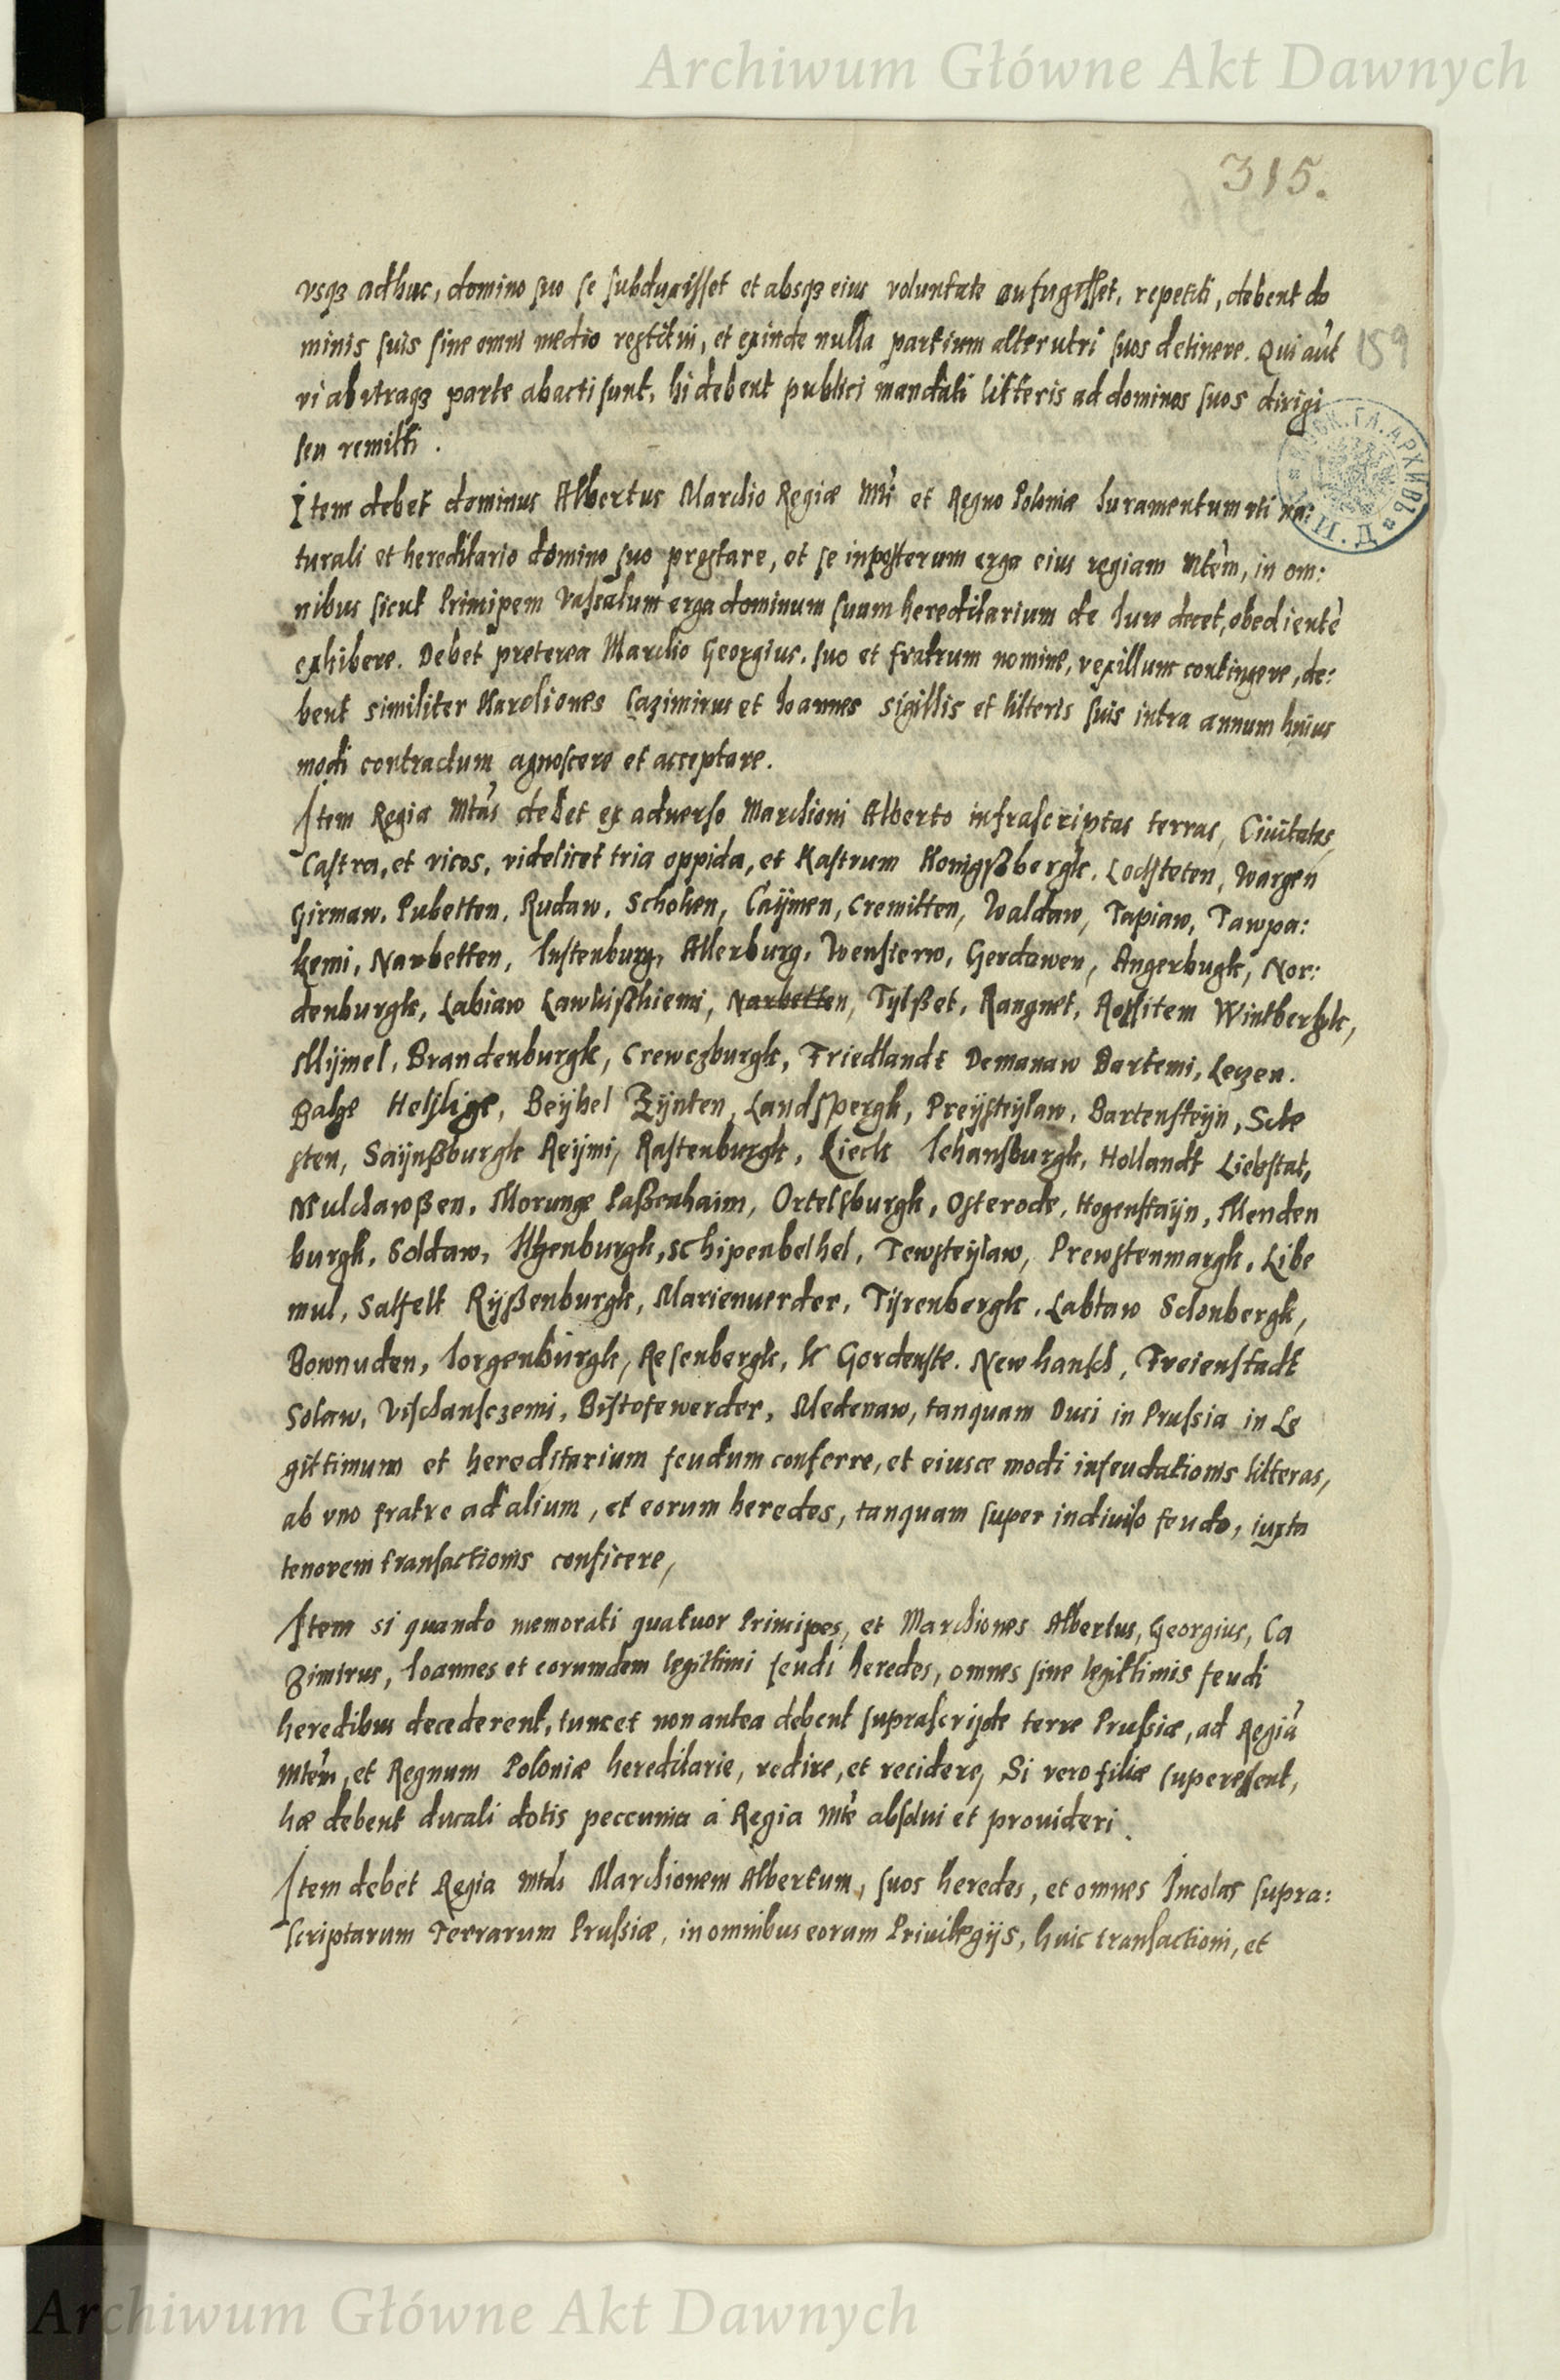 Archiwum Główne Akt Dawnych
315.
vsqꝫ adhuc, domino suo se subduxisset et absqꝫ eius voluntate aufugisset, repetiti, debent do
minis suis sine omni medio restitui, et exinde nulla partium alterutri suos detinere. Qui aūt
159
vi ab vtraqꝫ parte abacti sunt, hi debent publici mandati litteris ad dominos suos dirigi
seu remitti.
Item debet dominus Albertus Marchio Regiæ Mti et Regno Poloniæ Iuramentum vti na:
turali et hereditario domino suo prestare, et se inposterum erga eius regiam Mtem, in om:
nibus sicut Principem Vassalum erga dominum suum hereditarium de Iure decet, obediente
exhibere. Debet preterea Marchio Georgius, suo et fratrum nomine, vexillum contingere, de:
bent similiter Marchiones Cazimirus et Ioannes sigillis et litteris suis intra annum huius
modi contractum agnoscere et acceptare.
Item Regia Mtas debet ex aduerso Marchioni Alberto infrascriptas terras, Ciuitates,
Castra, et vicos, videlicet tria oppida, et Kastrum Konigßbergk, Lochsteten, Wargen
Girmaw, Pubetten, Rudaw, Schoken, Caÿmen, Cremitten, Waldaw, Tapiaw, Tawpa:
kemi, Narbetten, Instenburg, Allerburg, Wensterw, Gerdawen, Angerbugk, Nor:
denburgk, Labiaw Lawkischkemi, Narbetten, Tylßet, Rangnet, Rossitem Wintbergk,
Mÿmel, Brandenburgk, Crewczburgk, Friedlandt Demanaw Bartemi, Leczen.
Balge Helslige, Beÿhel Zÿnten, Landspergk, Preÿsteÿlaw, Bartensteÿn, Sche
sten, Saÿnßburgk Reÿmi, Rastenburgk, Lieck Iohansburgk, Hollandt Liebstat,
Mulchawßen, Morunge Paßenhaim, Ortelsburgk, Osterode, Hogenstaÿn, Menden
burgk, Soldaw, Ilgenburgk, Schipenbelhel, Tewsteÿlaw, Prewstenmargk, Libe
mul, Salfelt Rÿßenburgk, Marienwerder, Tÿrenbergk, Labtaw Schonbergk,
Bownuden, Iorgenburgk, Resenbergk, K Gordenste. Newhansch, Freienstadt
Solaw, Vischansczemi, Bistofewerder, Medenaw, tanquam Duci in Prussia in Le
gittimum et hereditarium feudum conferre, et eiusce modi infeudationis litteras,
ab vno fratre ad alium, et eorum heredes, tanquam super indiuiso feudo, iuxta
tenorem transactionis conficere,
Item si quando memorati quatuor Principes, et Marchiones Albertus, Georgius, Ca
zimirus, Ioannes et eorumdem legittimi feudi heredes, omnes sine legittimis feudi
heredibus decederent, tunc et non antea debent suprascripte terre Prussiæ, ad Regiā
Mtem, et Regnum Poloniæ hereditarie, redire, et recidere, Si vero filiæ superessent,
hæ debent ducali dotis peccunia á Regia Mte absolui et prouideri.
Item debet Regia Mtas Marchionem Albertum, suos heredes, et omnes Incolas supra:
scriptarum Terrarum Prussiæ, in omnibus eorum Priuilegijs, huic transactioni, et
Archiwum Główne Akt Dawnych